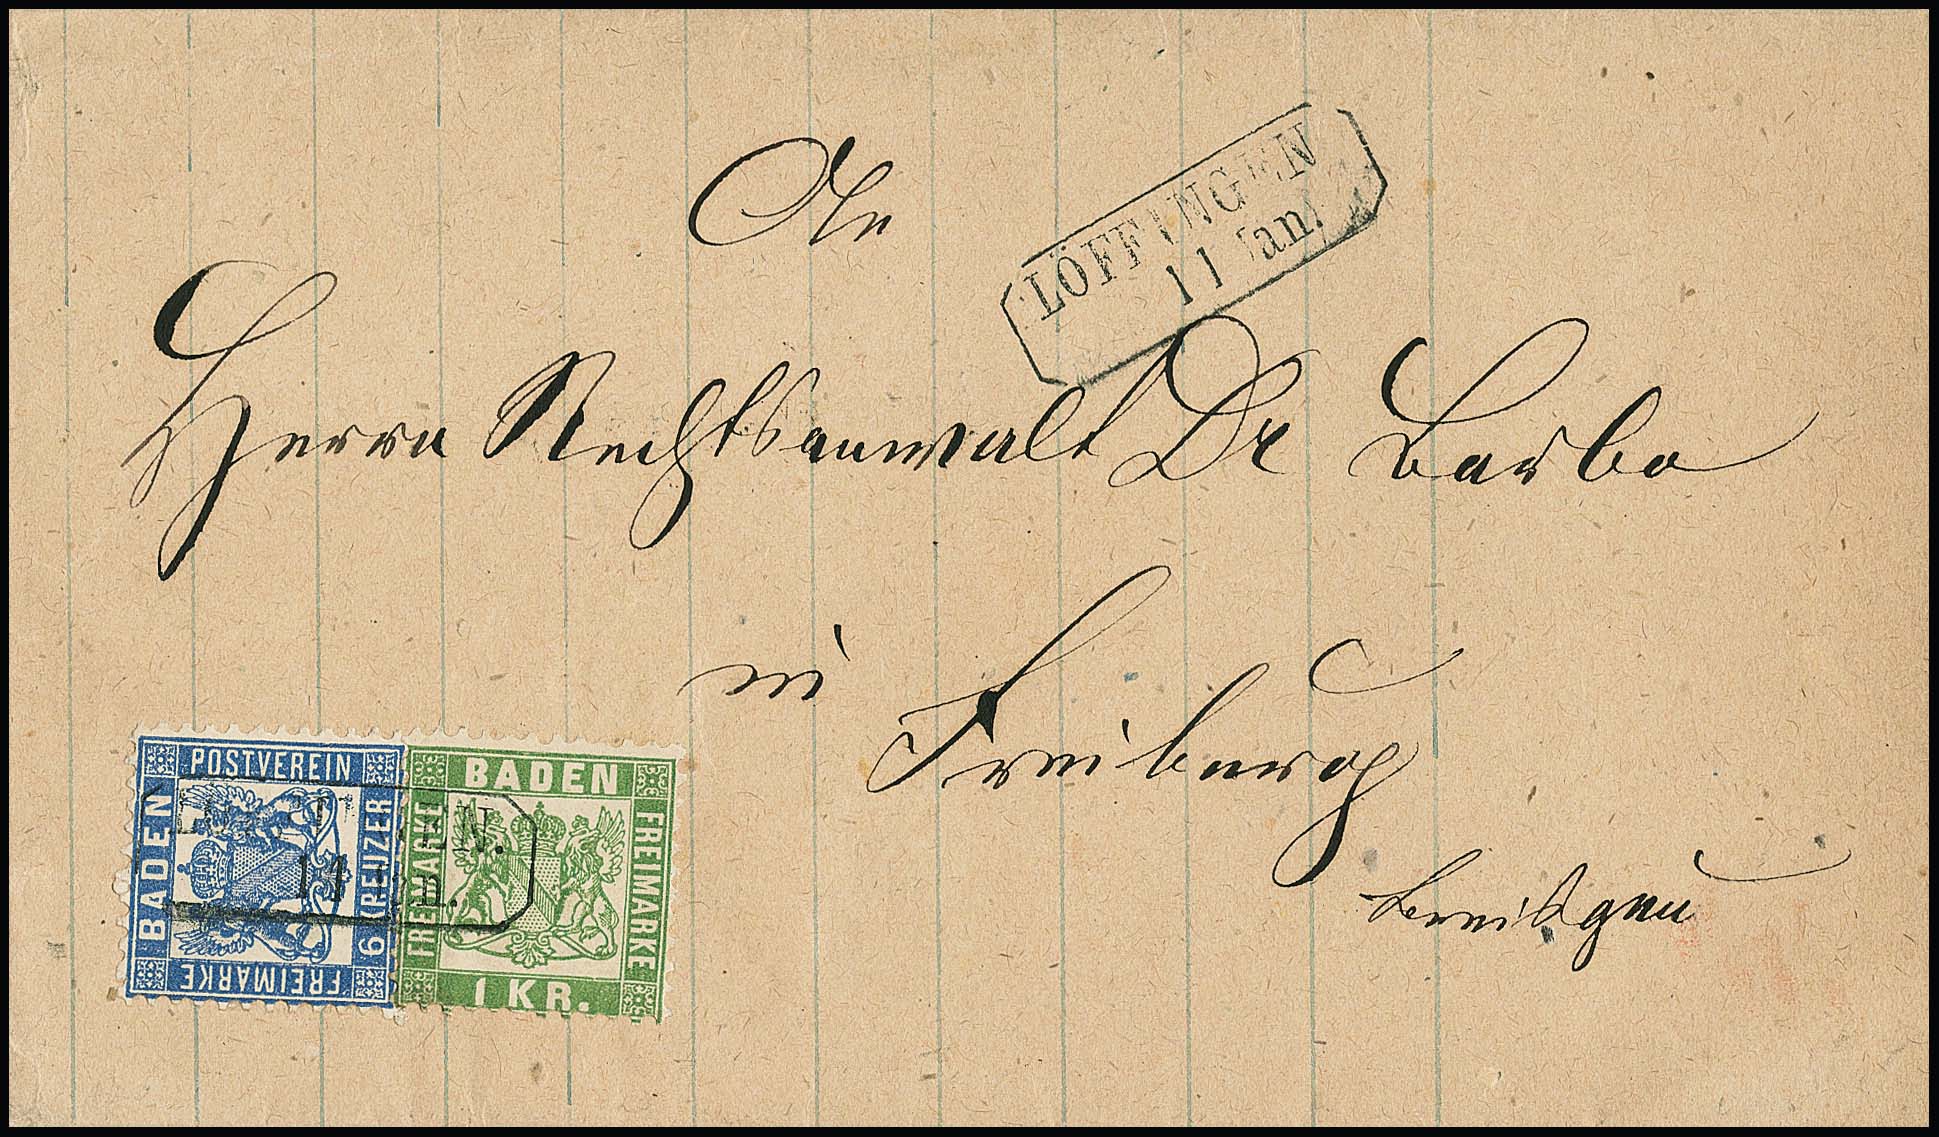 An
LÖFFINGEN
11 Jan.
Herrn Rechtsanwalt Dr Barbo
in
Freiburg
Breisgau
POSTVEREIN
BADEN
6 KREUZER
FREIMARKE
BADEN
FREIMARKE
FREIMARKE
1 KR.
LÖFFINGEN.
11 Jan.